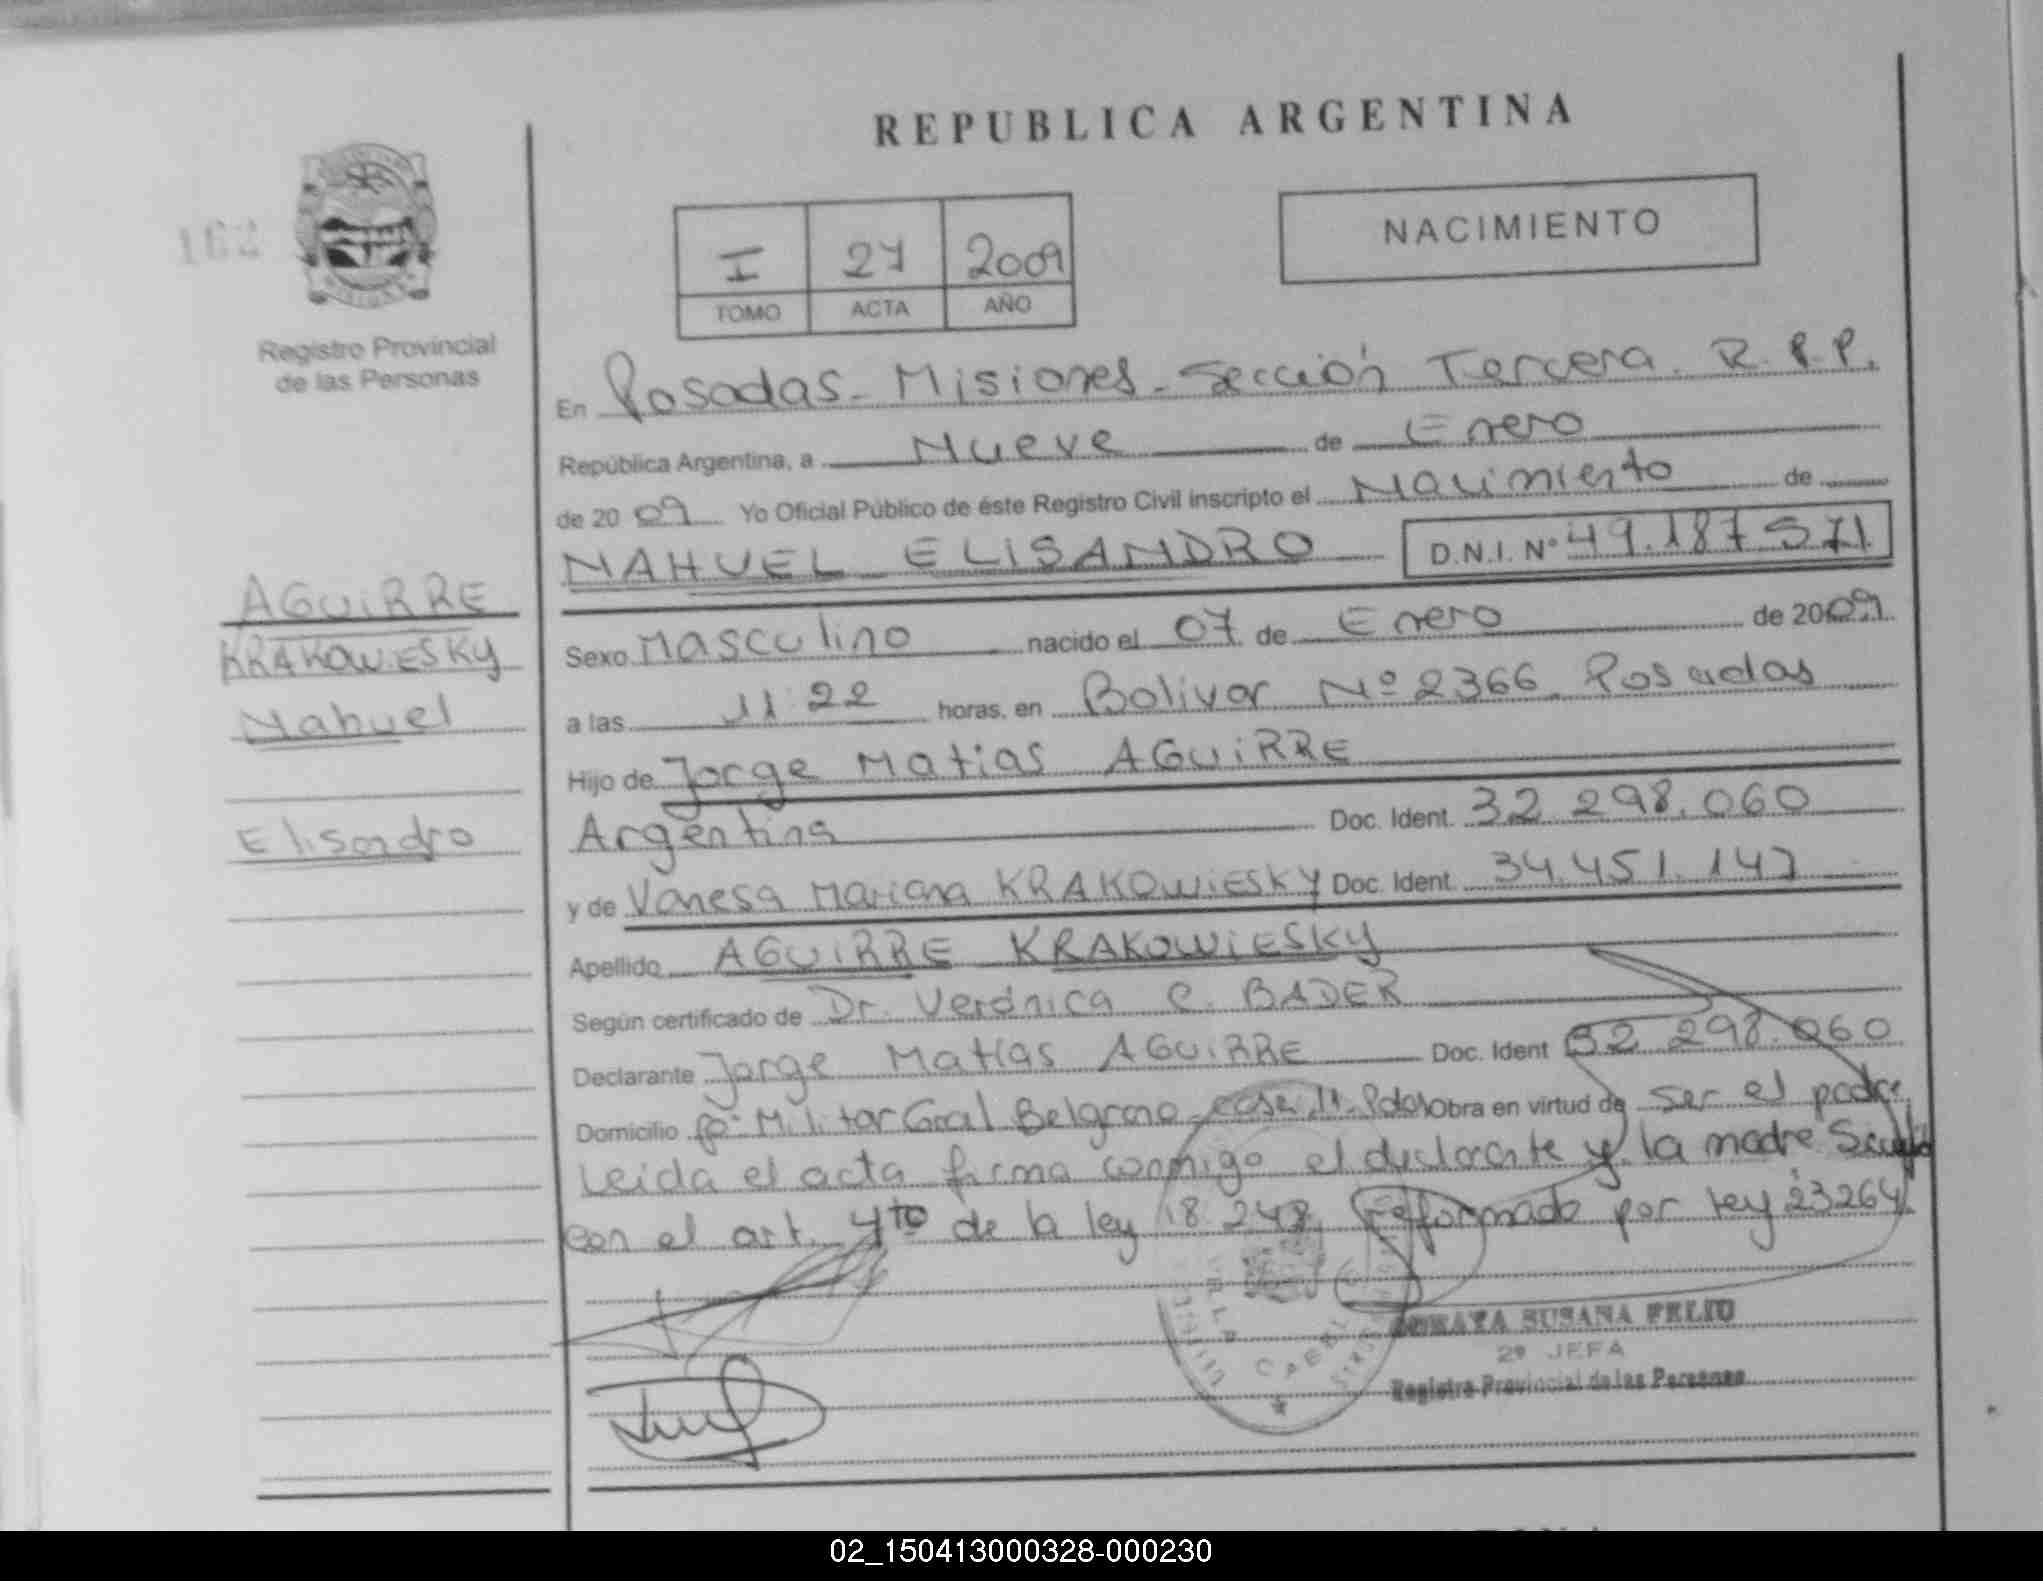 REPUBLICA ARGENTINA
162
NACIMIENTO
I 27 2009
TOMO ACTA AÑO
Registro Provincial
de las Personas
En Posadas - Misiones - Sección Tercera. R.P.P.
República Argentina, a Nueve de Enero
de 2009 Yo Oficial Público de éste Registro Civil inscripto el Nacimiento de
NAHUEL ELISANDRO D.N.I. Nº 49.187.571
AGUiRRE
KRAKOWiESKY
Nahuel
Elisandro
Sexo Masculino nacido el 07 de Enero de 2009
a las 11:22 horas, en Bolivar Nº 2366. Posadas
Hijo de Jorge Matias AGUiRRE
Argentina Doc. Ident. 32.298.060
y de Vanesa Mariana KRAKOWiESKY Doc. Ident. 34.451.147
Apellido AGUiRRE KRAKOWiESKY
Según certificado de Dr. Verónica C. BADER
Declarante Jorge Matías AGUiRRE Doc. Ident 32.298.060
Domicilio Bº Militar Gral Belgrano casa 11 - Pdas Obra en virtud de ser el padre
Leida el acta firma conmigo el declarante y la madre
con el art. 4to de la ley 18.248, Reformado por ley 23264
SORAYA SUSANA FELIU
2º JEFA
Registro Provincial de las Personas
02_150413000328-000230